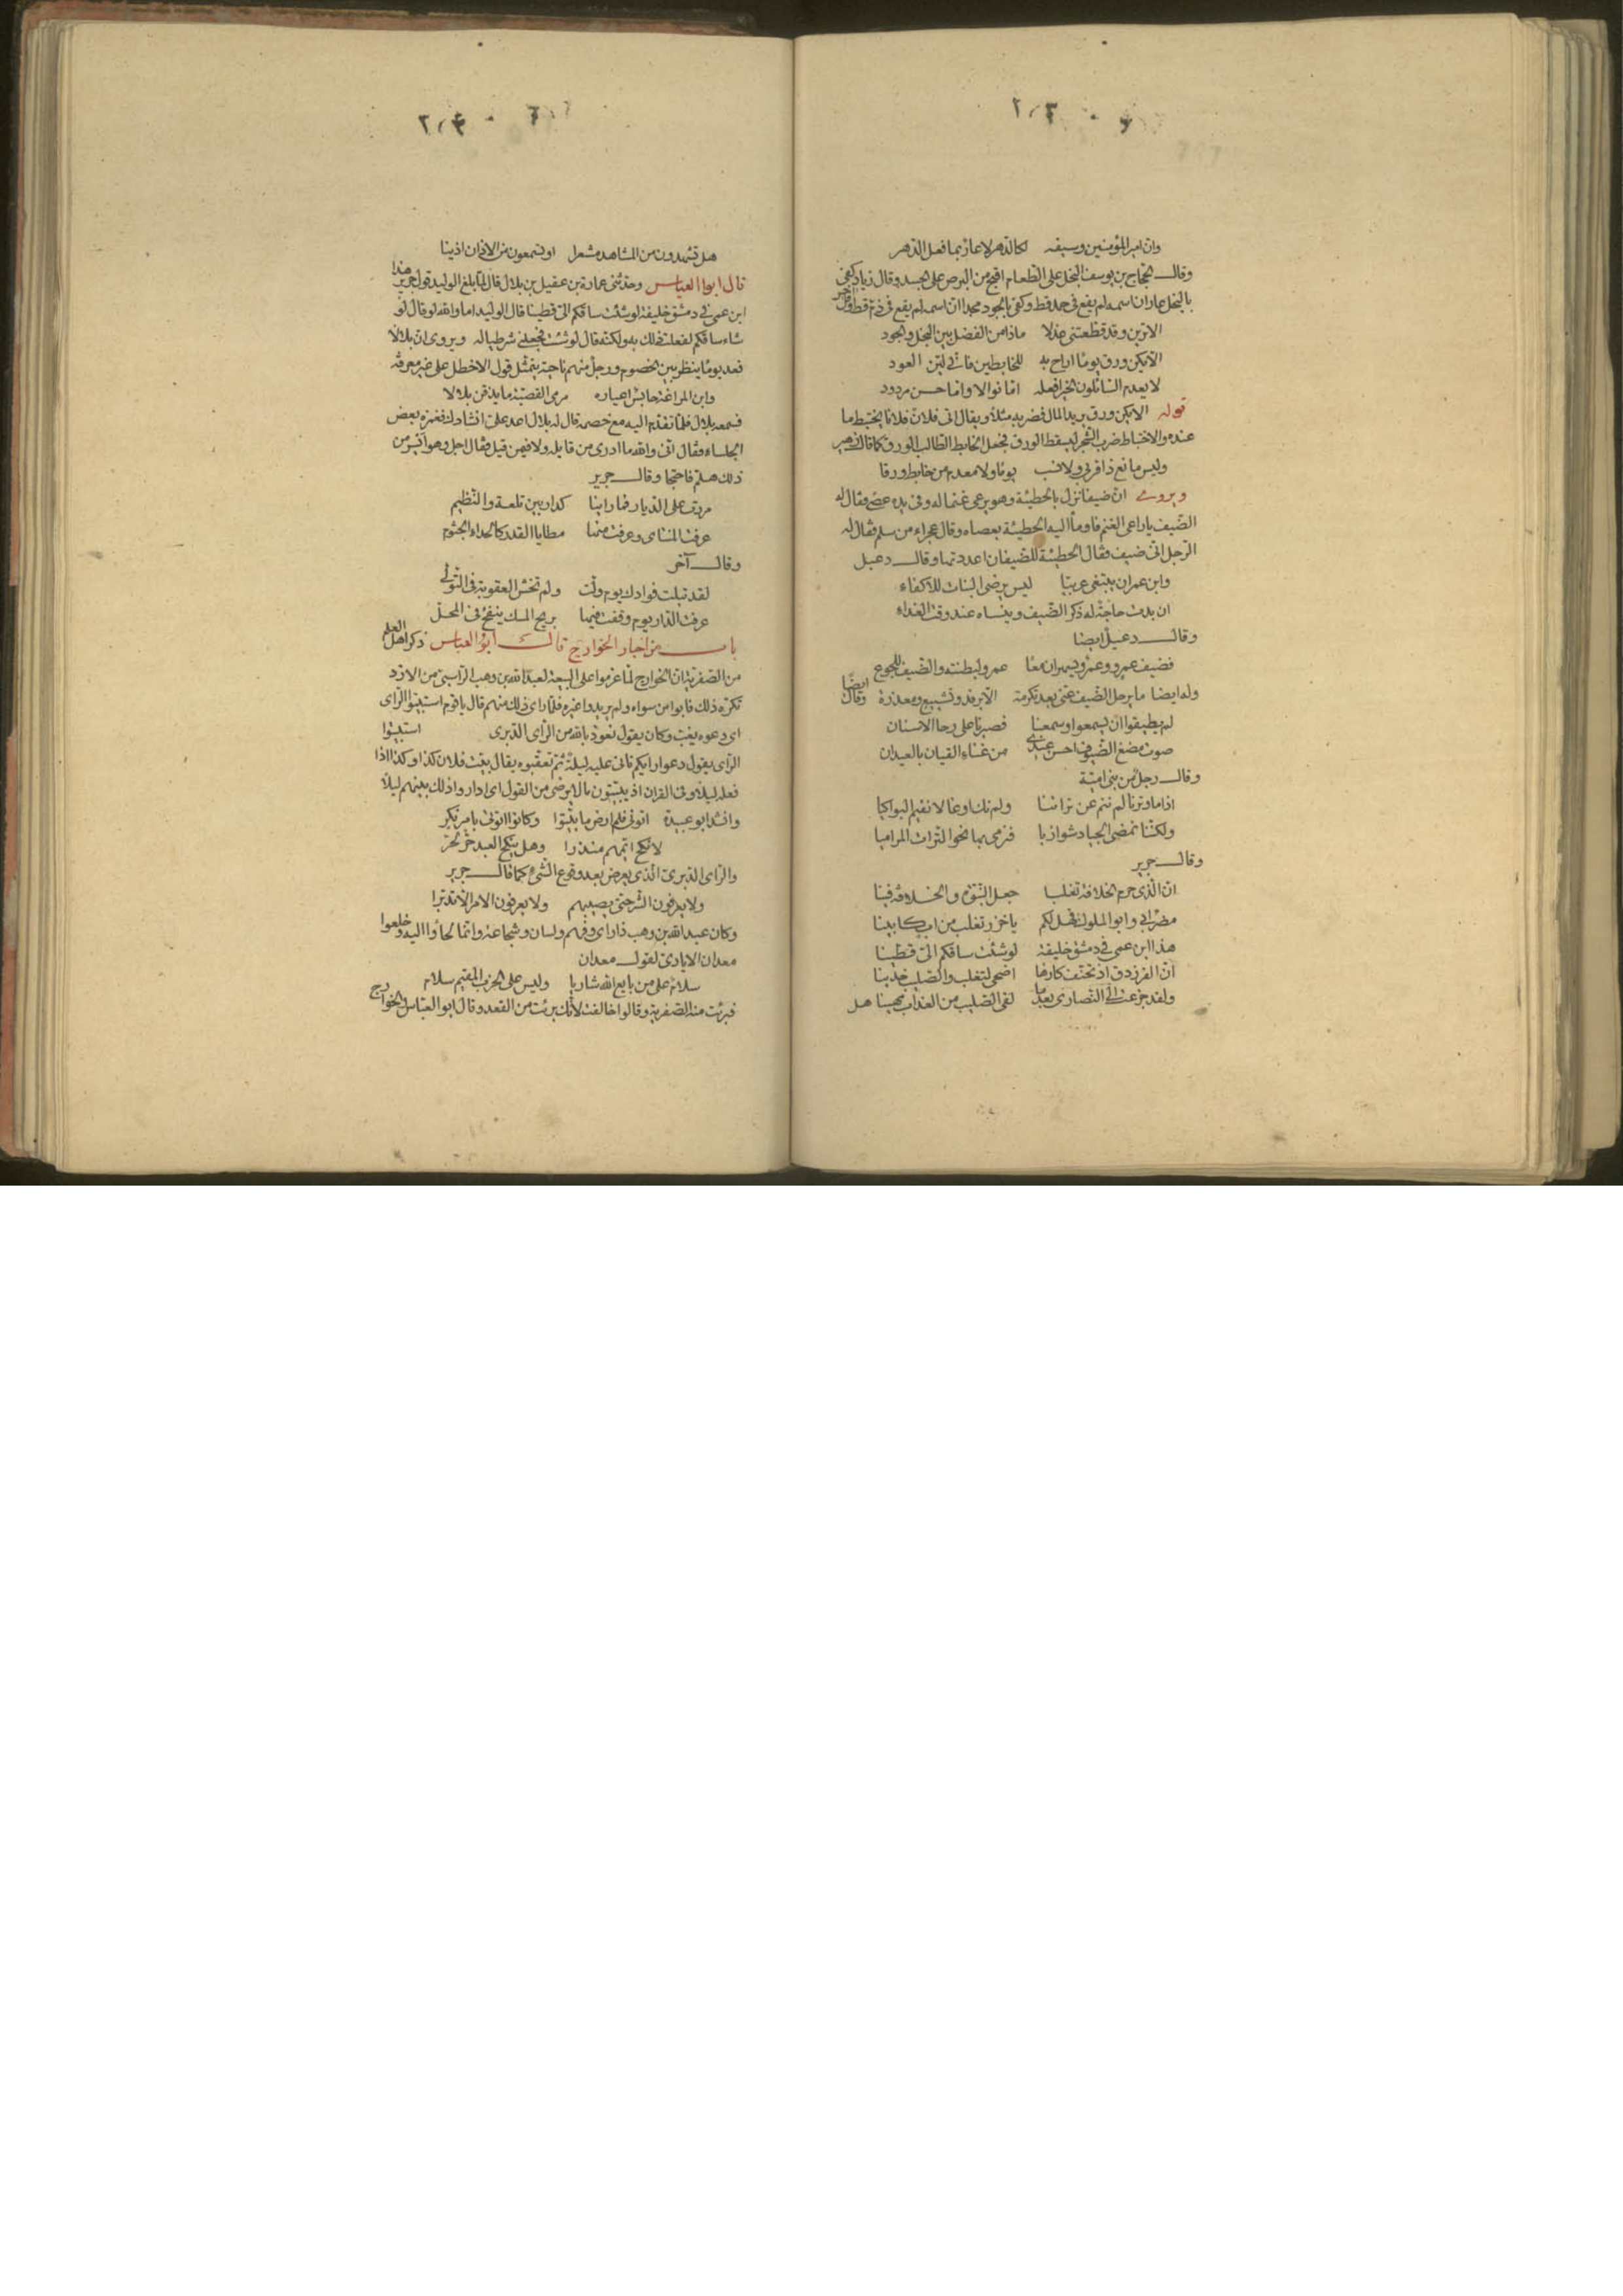 وان امير المؤمنين وسيفه لكالدهر لا عار بما فعل الدهر
وقال الحجاج بن يوسف البخل على الطعام اقبح من البرص على الجسد وقال زياد كفى
بالبخل عارا ان اسمه لم يقع فى حمد قط وكفى بالجود مجدا ان اسمه لم يقع فى ذم قط وقال آخر
الا ترين وقد قطعتنى عذلا ماذا من الفضل بين البخل والجود
الا يكن ورق يوما اراح به للخابطين فانى لين العود
لا يعدم السائلون الخير افعله اما نوالا واما حسن مردود
قوله الا يكن ورق يريد المال فضربه مثلا ويقال اتى فلان فلانا يختبط ما
عنده والاختباط ضرب الشجر ليسقط الورق فجعل الخابط الطالب الورق كما قال زهير
وليس مانع ذا قربى ولا نسب يوما ولا معدما من خابط ورقا
ويروى ان ضيفا نزل بالحطيئة وهو يرعى غنما له وفى يده عصى فقال له
الضيف يا راعى الغنم فاومأ اليه الحطيئة بعصاه وقال عجراء من سلم فقال له
الرجل انى ضيف فقال الحطيئة للضيفان اعددتها وقال دعبل
وابن عمران يبتغى عربيا ليس يرضى البنات للاكفاء
ان بدت حاجة له ذكر الضيف وينساه عند وقت الغداء
وقال دعبل ايضا
فضيف عمرو وعمرو يسهران معا عمرو لبطنته والضيف للجوع
وله ايضا ما يرحل الضيف عنى بعد تكرمة الا برفد وتشييع ومعذرة وقال ايضا
لم يطيقوا ان يسمعوا وسمعنا فصبرنا على رحا الاسنان
صوت مضغ الضيوف احسن عندى من غناء القيان بالعيدان
وقال رجل من بنى امية
اذا ما وترنا لم ننم عن تراتنا ولم نك اوغالا نقيم البواكيا
ولكننا نمضى الجياد شوازبا فنرمى بها نحو الترات المراميا
وقال جرير
ان الذى حرم الخلافة تغلبا جعل النبوة والخلافة فينا
مضر ابى وابو الملوك فهل لكم يا خزر تغلب من اب كابينا
هذا ابن عمى فى دمشق خليفة لو شئت ساقكم الى قطينا
ان الفرزدق اذ تحنف كارها اضحى لتغلب والصليب خدينا
ولقد جزعت الى النصارى بعد ما لقى الصليب من العذاب مهينا هل
هل تشهدون من المشاهد مشعرا او تسمعون من الاذان اذينا
قال ابوا العباس وحدثنى عمارة بن عقيل بن بلال قال لما بلغ الوليد قول جرير هذا
ابن عمى فى دمشق خليفة لو شئت ساقكم الى قطينا قال الوليد اما والله لو قال لو
شاء ساقكم لفعلت ذلك به ولكنه قال لو شئت فجعلنى شرطيا له ويروى ان بلالا
قعد يوما ينظر بين الخصوم ورجل منهم ناحية يتمثل قول الاخطل على غير معرفة
وابن المراغة حابس اعياره مرمى القصية ما يذقن بلالا
فسمعه بلال فلما تقدم اليه مع خصمه قال له بلال اعد على انشادك فغمزه بعض
الجلساء فقال انى والله ما ادرى من قايله ولا فيمن قيل فقال اجل وهو اسير من
ذلك هلم فاحتجا وقال جرير
مررت على الديار فما راينا كدار بين تلعة والنظيم
عرفت المنتاى وعرفت منها مطايا القدر كالحداء الجثوم
وقال آخر
لقد تبلت فوادك يوم ولت ولم تخش العقوبة فى التولى
عرفت الدار يوم وقفت فيها بريح المسك ينفح فى المحل
باب من اخبار الخوارج قال ابو العباس ذكر اهل العلم
من الصفرية ان الخوارج لما عزموا على البيعة لعبد الله بن وهب الراسبى من الازد
تكره ذلك فابوا من سواه ولم يريدوا غيره فلما راى ذلك منهم قال يا قوم استبيتوا الراى
اى دعوه يغب وكان يقول نعوذ بالله من الراى الدبرى استبيتوا
الراى يقول دعوا رايكم تاتى عليه ليلة ثم تعقبوه يقال بيت فلان كذا وكذا اذا
فعله ليلا وفى القران اذ يبيتون ما لا يرضى من القول اى اداروا ذلك بينهم ليلا
وانشد ابو عبيدة اتونى فلم ارض ما بيتوا وكانوا اتونى بامر نكر
لانكح ايمهم منذرا وهل ينكح العبد حر لحر
والراى الدبرى الذى يعرض بعد وقوع الشئ كما قال جرير
ولا يعرفون الشر حتى يصيبهم ولا يعرفون الامر الا تدبرا
وكان عبد الله بن وهب ذا راى وفهم ولسان وشجاعة وانما لجأوا اليه وخلعوا
معدان الايادى لقول معدان
سلام على من بايع الله شاريا وليس على الحزب المقيم سلام
فبرئت منه الصفرية وقالوا خالفت لانك برئت من القعد وقال ابو العباس والخوارج